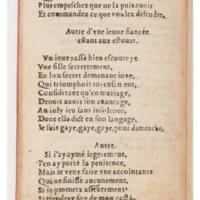 Plus empeschez que ne la puis auoir
Et commandez ce que voulez defendre.
Autre d'vne ieune fiancée
estant aux estuues.
Vn iour passé bleu escoutoye
Vne fille secrettement,
En lieu secret demenant ioye,
Qui triumphoit ioyeusement,
Considerant qu'en mariage,
Droit auoit son auantage,
An ioly ieu sans insolence,
Dont elle dict en son langage,
Je suis gaye, gaye, gaye, pour dimenche.
Autre.
Si i'ay aymé legerement,
I'en ay porté la penitence,
Mais ie veux faire vne accointance
Qui ne finisse aucunement.
Si ie prometz asseurément